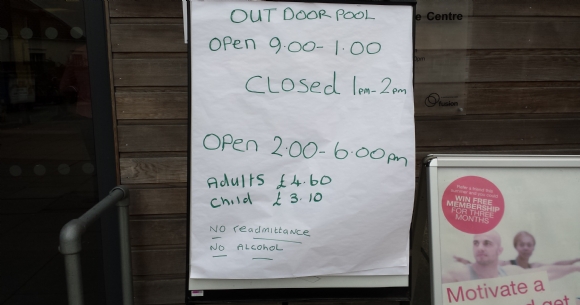 OUTDOOR POOL
OPEN 9.00 - 1.00
CLOSED 1pm - 2pm
OPEN 2.00 - 6.00pm
Adults £4.60
Child £3.10
NO readmittance
NO AlCOHOL
e Centre
WIN FREE
MEMBERSHIP
FOR THREE
MONTHS
Motivate a